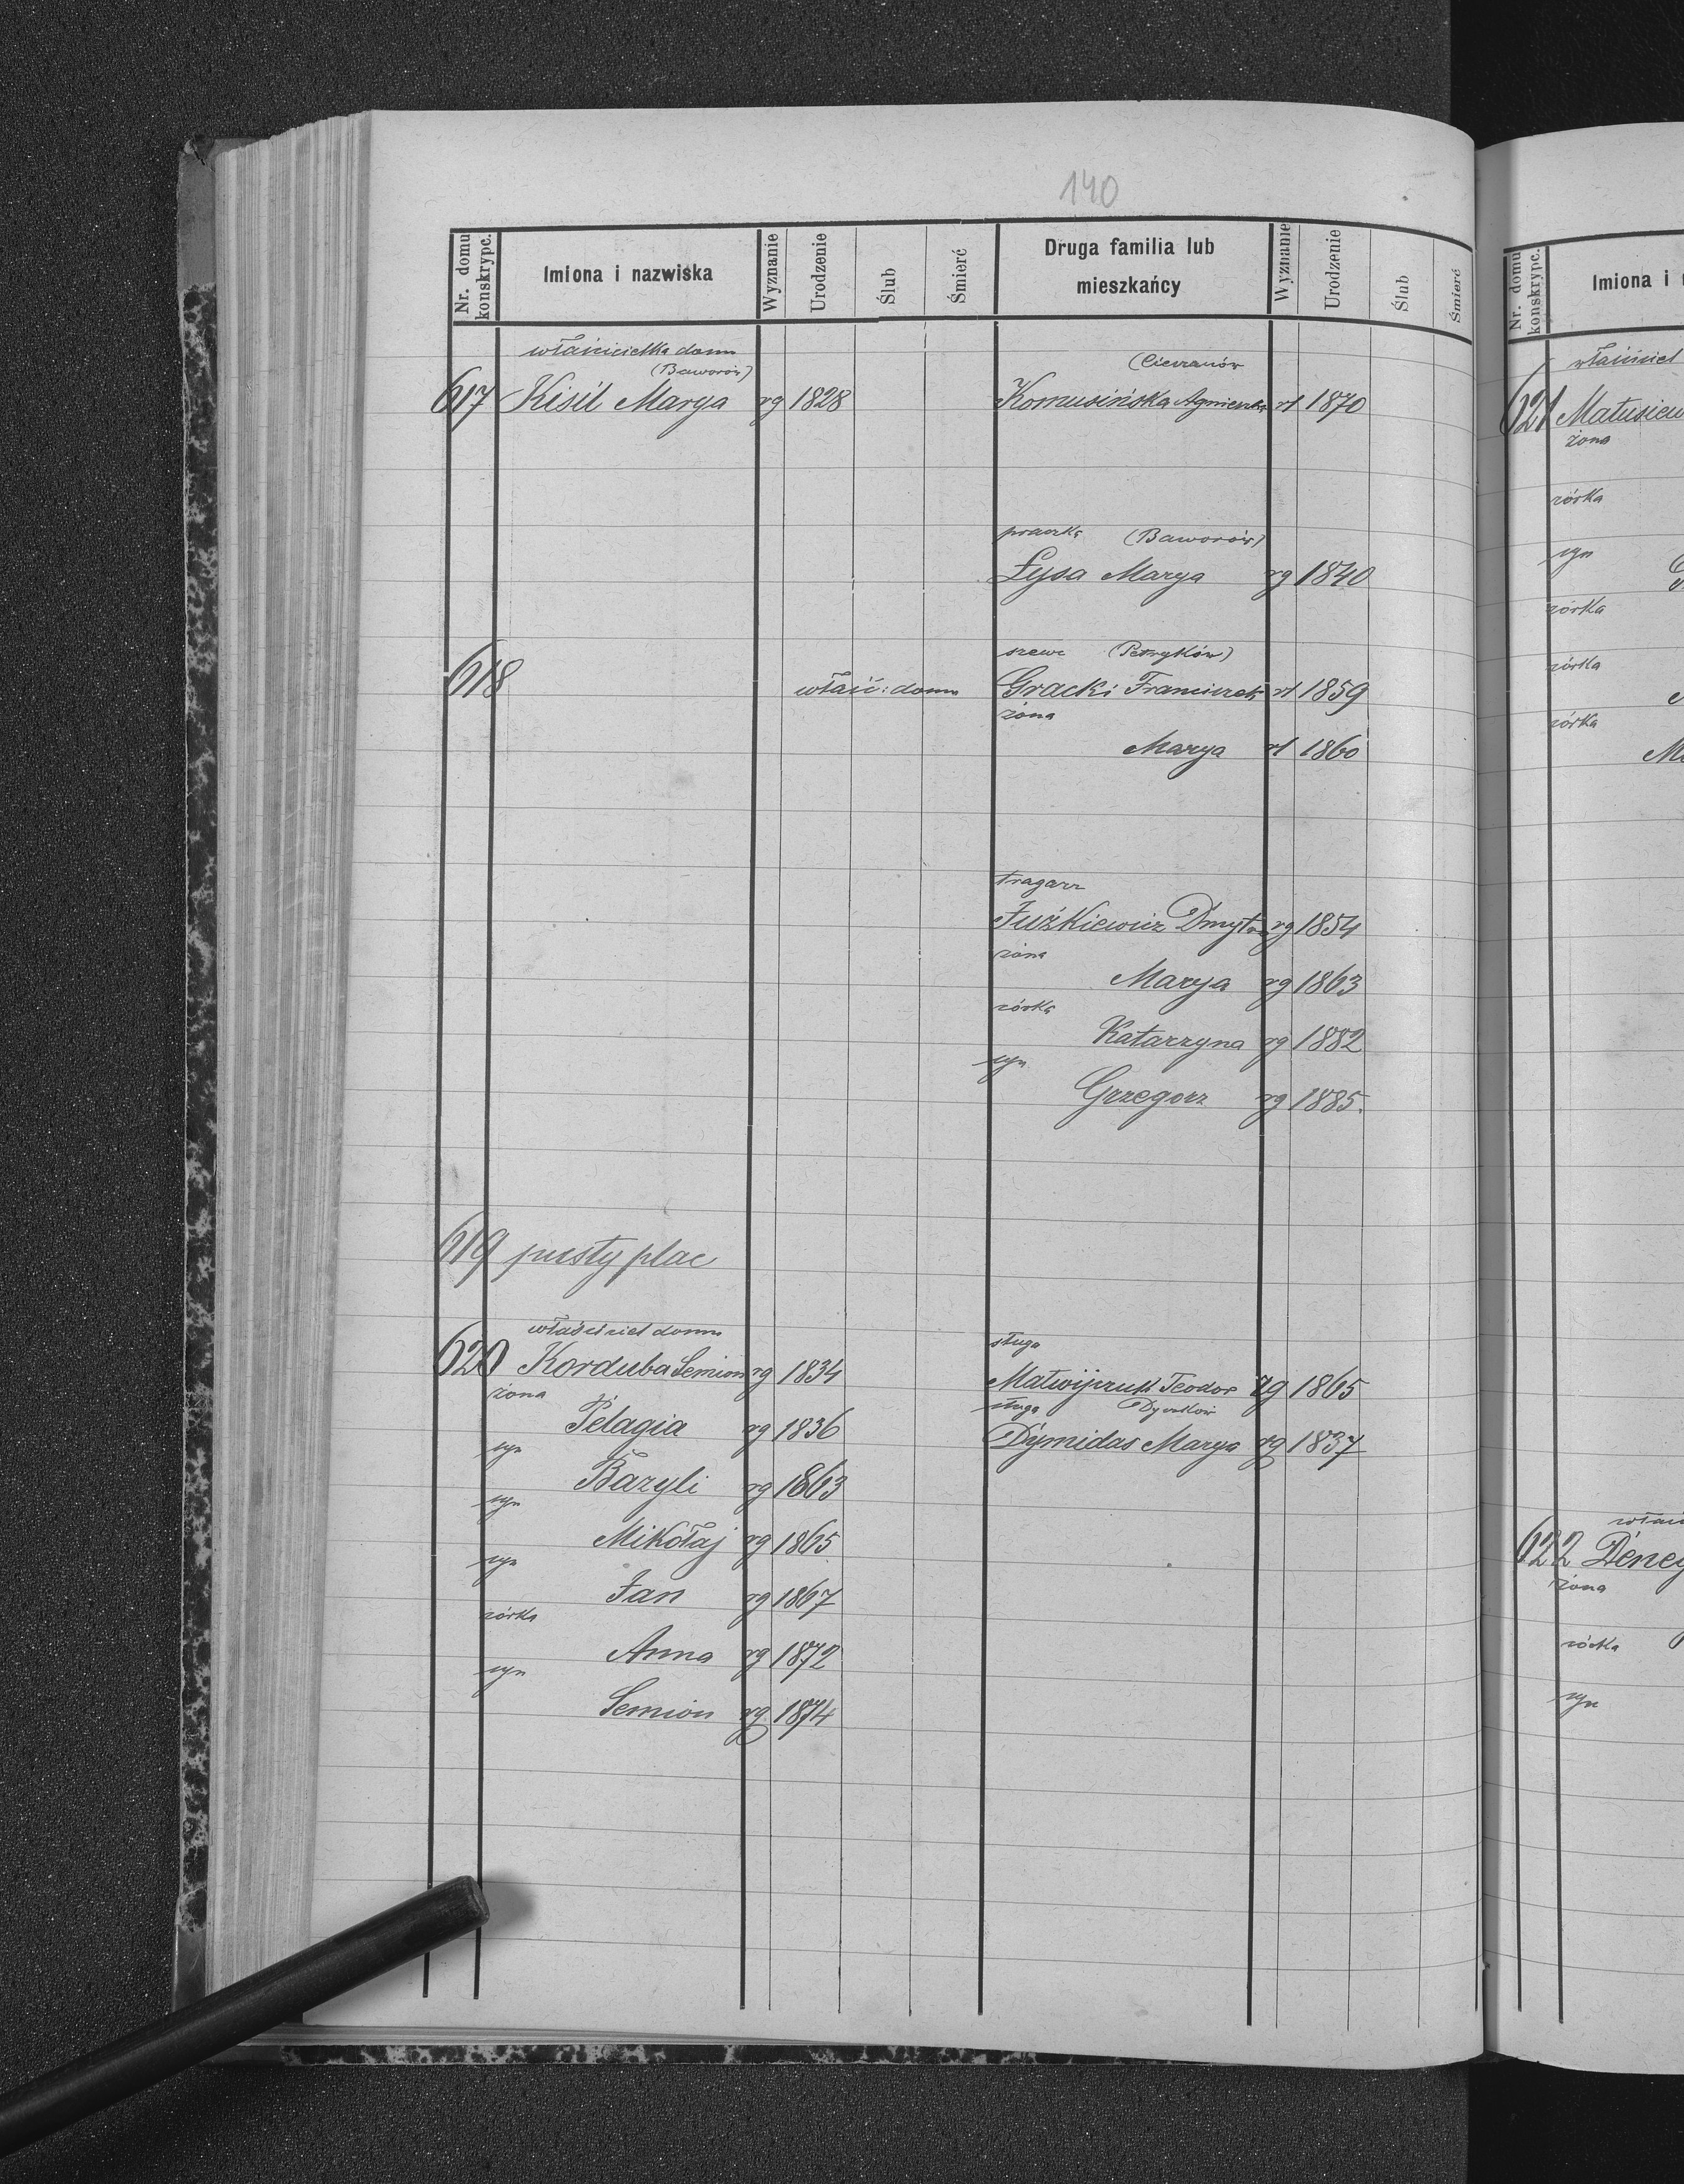 140
Nr. domu konskrypc. Imiona i nazwiska Wyznanie Urodzenie Ślub Śmierć Druga familia lub mieszkańcy Wyznanie Urodzenie Ślub Śmierć
właścicielka domu
(Baworów)
617 Kisil Marya rg 1828
Komusińska Agnieszka rł 1870
praczka (Baworów)
Łysa Marya rg 1840
szewc (Petryków)
618 właść: domu Gracki Franciszek rł 1859
żona
Marya rł 1860
tragarz
Juźkiewicz Dmytro rg 1854
żona
Marya rg 1863
córka
Katarzyna rg 1882
syn
Grzegorz rg 1885.
619 pusty plac
właściciel domu
620 Korduba Semion rg 1834
żona
Pelagia rg 1836
syn
Bazyli rg 1863
syn
Mikołaj rg 1865
syn
Jan rg 1867
córka
Anna rg 1872
syn
Semion rg 1874
sługa
Matwijczuk Teodor rg 1865
sługa Dyczków
Dymidas Marya rg 1837
Nr. domu konskrypc. Imiona i
właściciel
621 Matusiew
żona
córka
syn
córka
córka
córka
622
żona
córka
syn